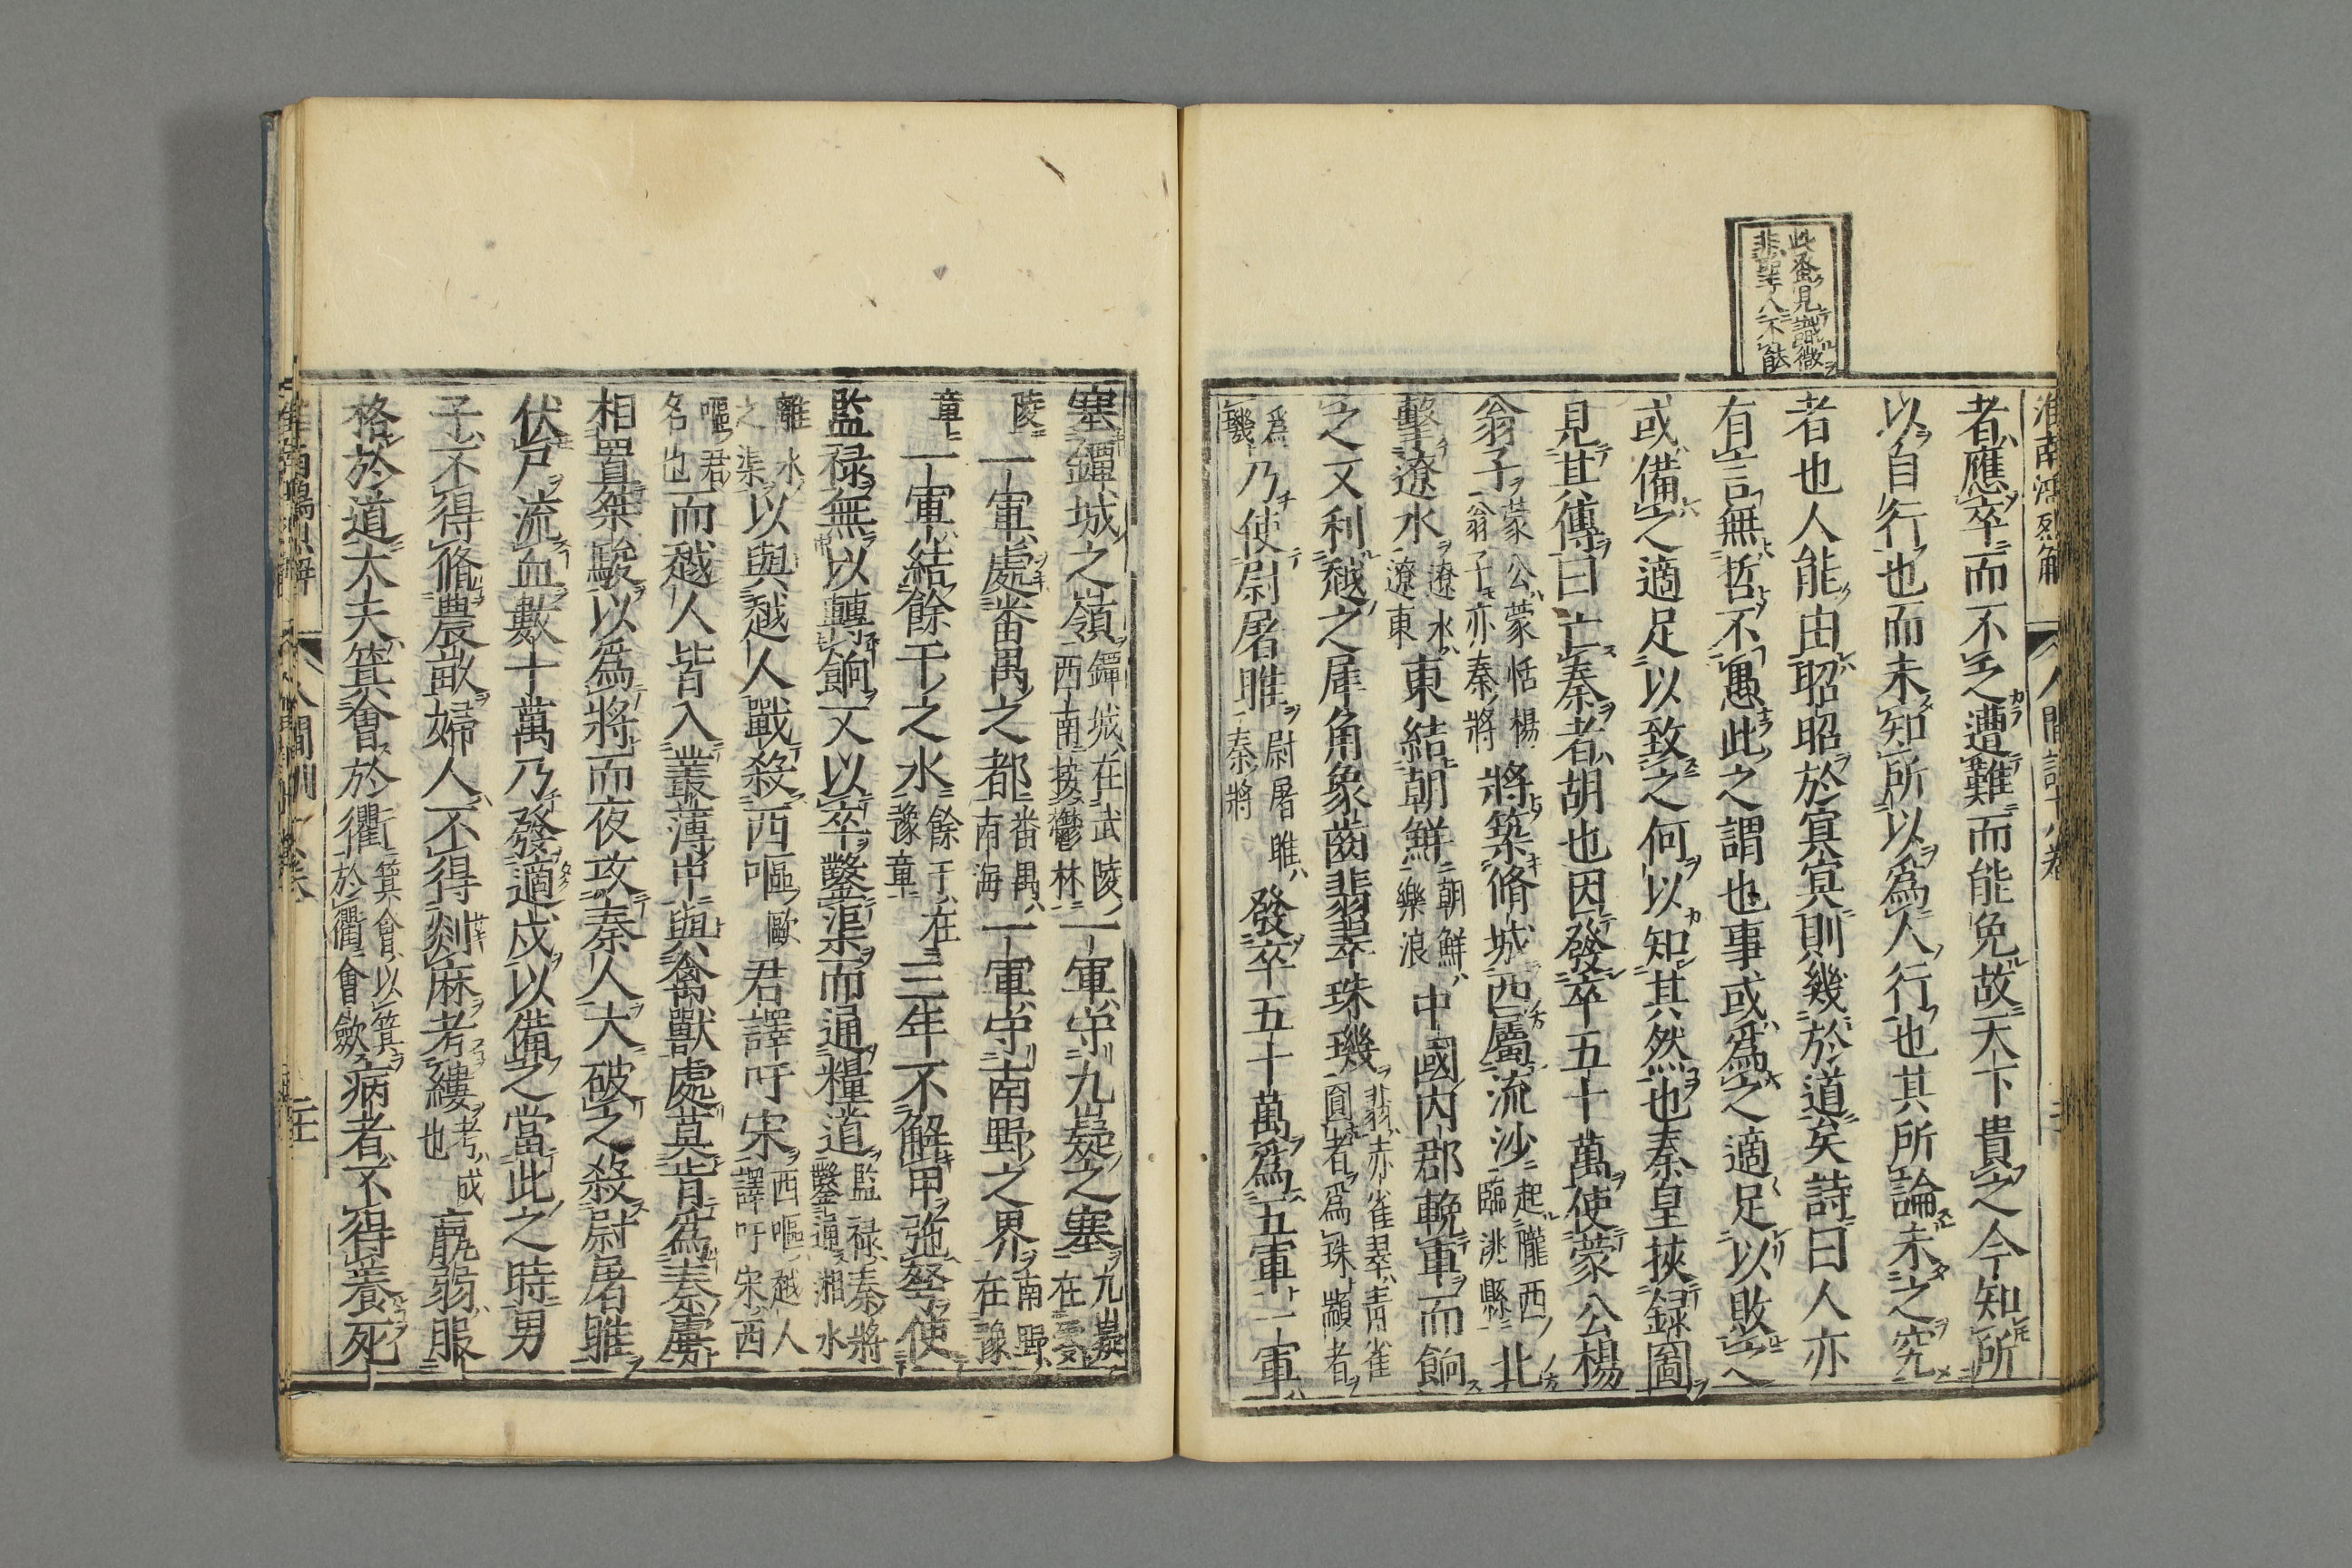 此蚤見識微
非聖人不能
淮南鴻烈解 人間訓十八卷
者應卒而不乏遭難而能免故天下貴之今知所
以自行也而未知所以爲人行也其所論未之究
者也人能由昭昭於冥冥則幾於道矣詩曰人亦
有言無哲不愚此之謂也事或爲之適足以敗之
或備之適足以致之何以知其然也秦皇挾録圖
見其傳曰亡秦者胡也因發卒五十萬使蒙公楊
翁子蒙公蒙恬楊翁子亦秦將將築脩城西屬流沙起隴西臨洮縣北
擊遼水遼水遼東東結朝鮮朝鮮樂浪中國内郡輓車而餉
之又利越之犀角象齒翡翠珠璣翡赤雀翠青雀圓者爲珠纇者
爲璣乃使尉屠睢尉屠睢秦將發卒五十萬爲五軍一軍
塞鐔城之嶺鐔城在武陵西南接鬱林一軍守九嶷之塞九嶷在零
陵一軍處番禺之都番禺南海一軍守南野之界南野在豫
章一軍結餘干之水餘干在豫章三年不解甲弛弩使
監禄無以轉餉又以卒鑿渠而通糧道監禄秦將鑿通湘水
離水之渠以與越人戰殺西嘔歐君譯吁宋西嘔越人譯吁宋西
嘔君名也而越人皆入叢薄中與禽獸處莫肯爲秦虜
相置桀駿以爲將而夜攻秦人大破之殺尉屠睢
伏尸流血數十萬乃發適戍以備之當此之時男
子不得脩農畝婦人不得剡麻考縷考成也羸弱服
格於道大夫箕會於衢箕會以箕於衢會歛病者不得養死
淮南鴻烈解 人間訓